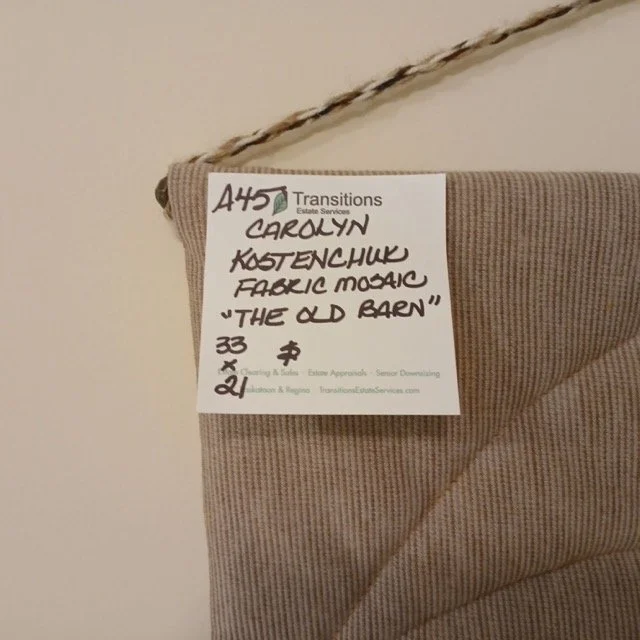 A45 Transitions
Estate Services
CAROLYN
KOSTENCHUK
FABRIC MOSAIC
"THE OLD BARN"
33 $
x
Clearing & Sales · Estate Appraisals · Senior Downsizing
21
Saskatoon & Regina · TransitionsEstateServices.com